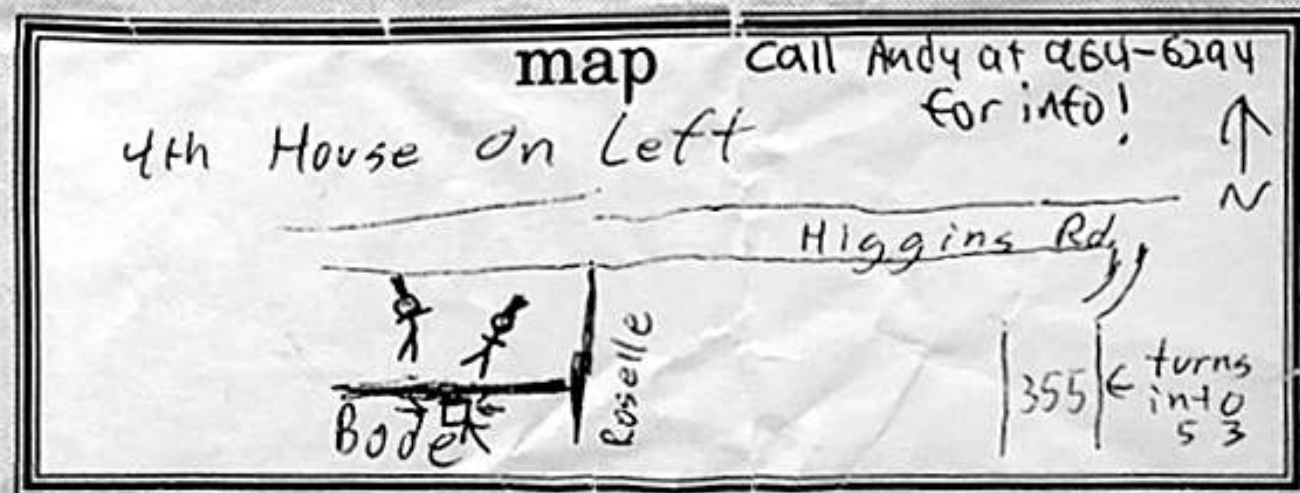 map
Call Andy at 964-6294
for info!
4th House On Left
N
Higgins Rd.
Roselle
Bode
355
turns
into
53